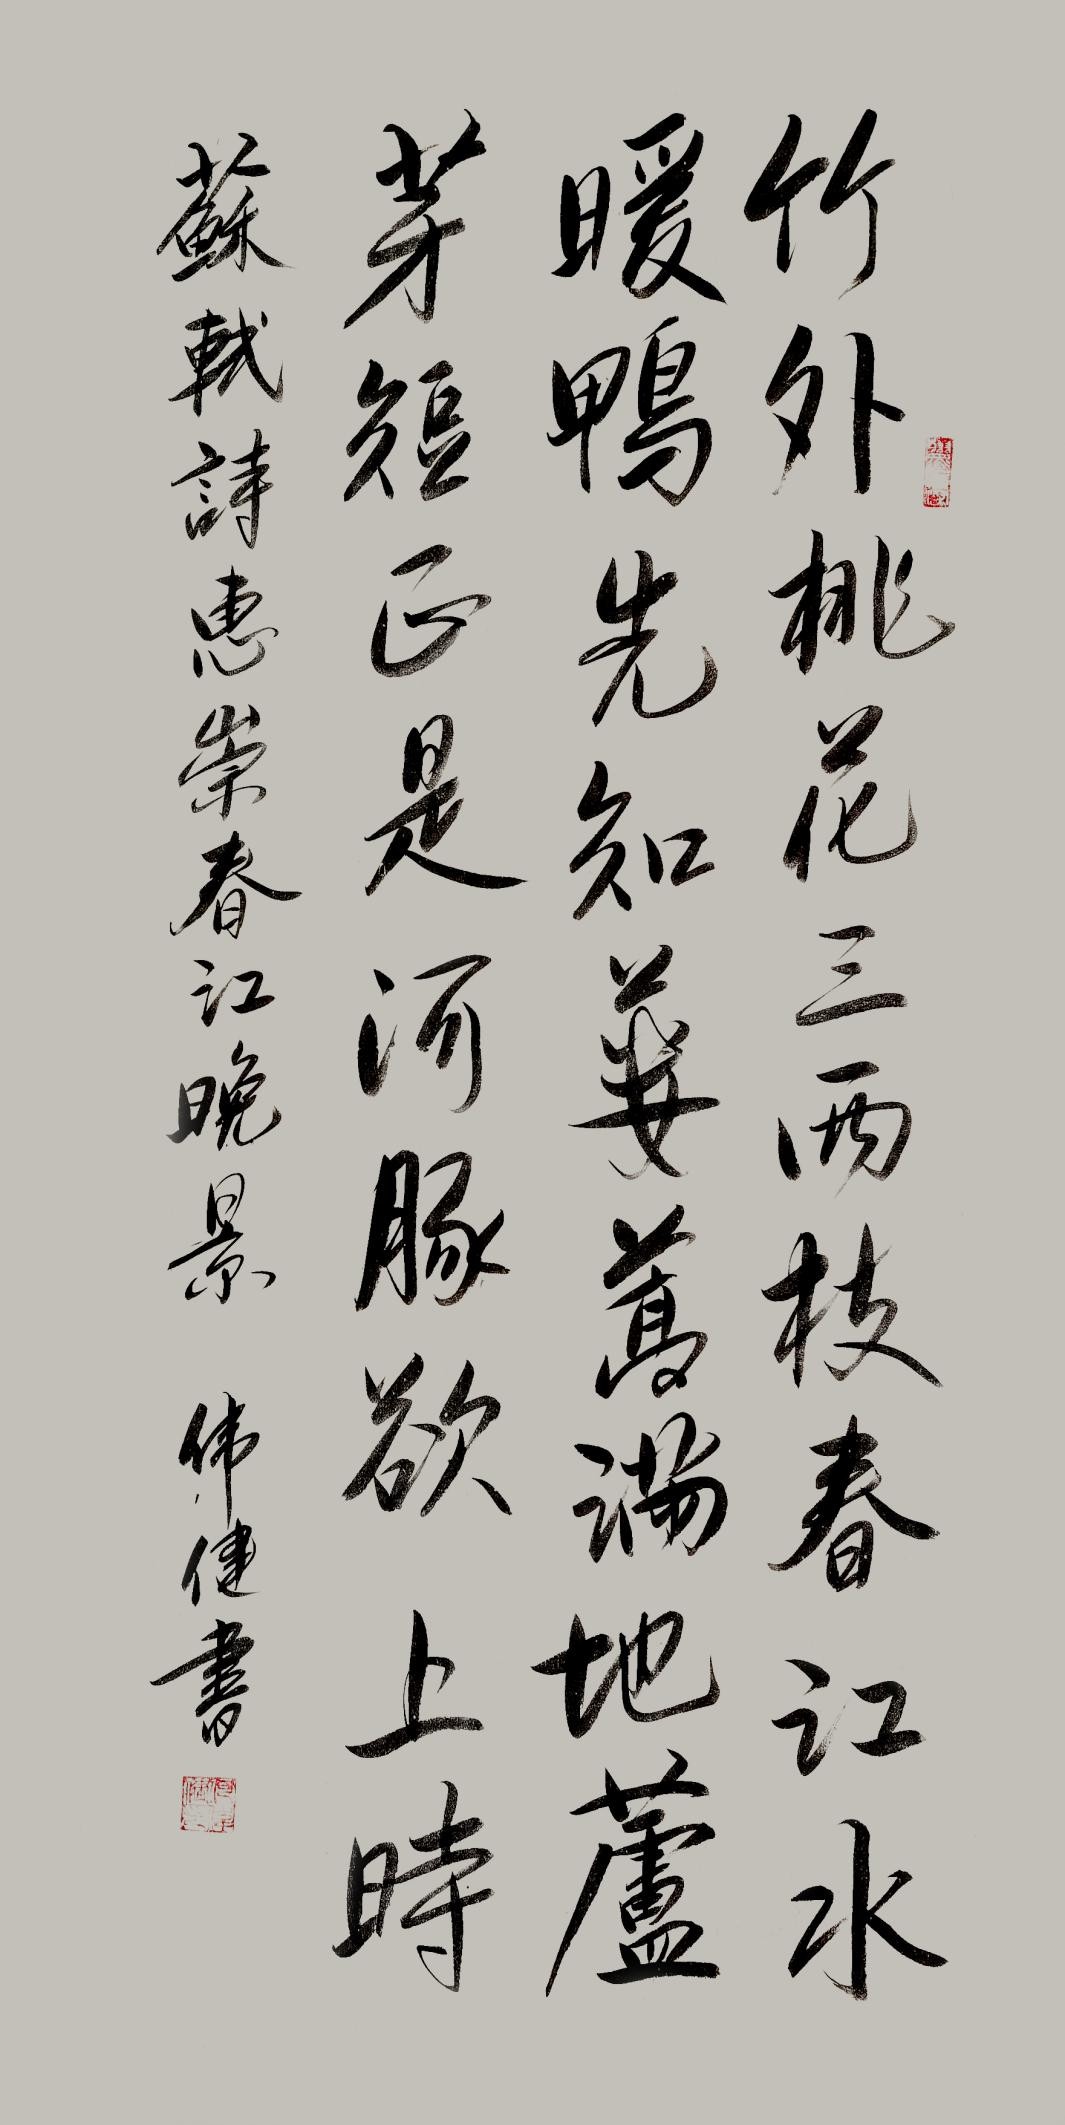 竹外桃花三兩枝春江水
暖鴨先知蔞蒿滿地蘆
芽短正是河豚欲上時
蘇軾詩惠崇春江晚景 伟健書